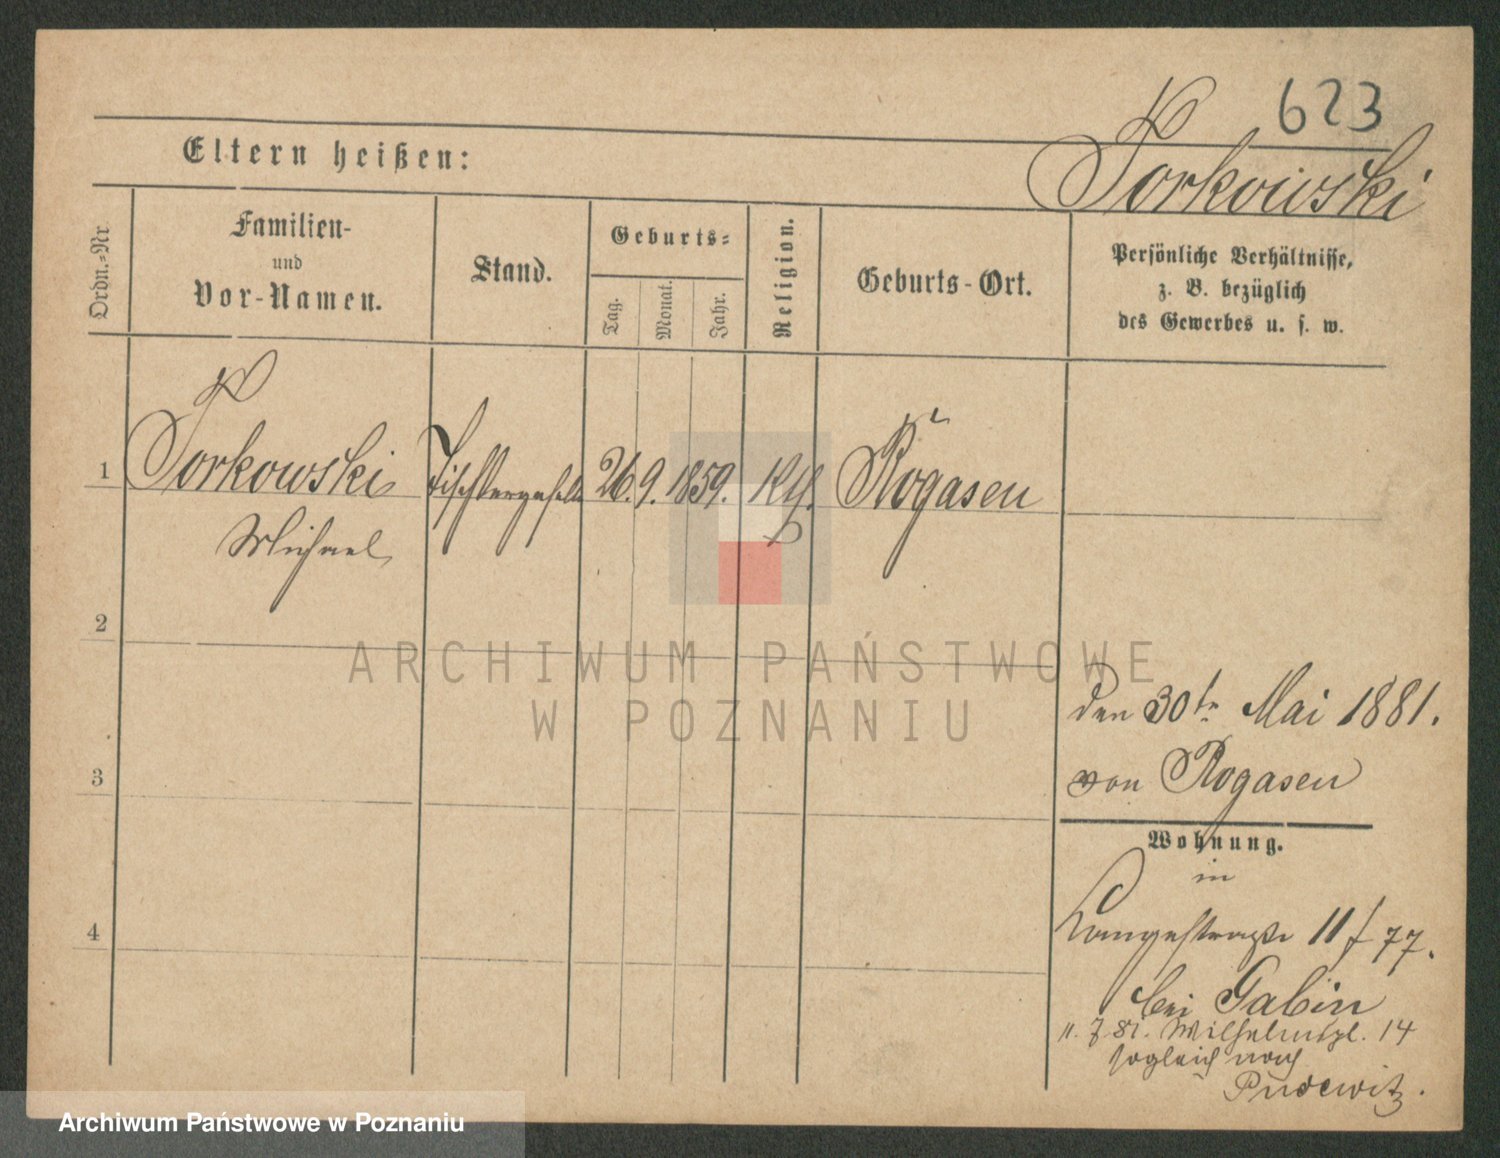 623
Eltern heißen:
Torkowski
Ordn.-Nr.
Familien-
und
Vor-Namen.
Stand.
Geburts-
Tag.
Monat.
Jahr.
Religion.
Geburts-Ort.
Persönliche Verhältnisse,
z. B. bezüglich
des Gewerbes u. s. w.
1 Torkowski Tischlergeselle 26. 9. 1859. Kth. Rogasen
Michael
2
3
4
den 30tn Mai 1881.
von Rogasen
Wohnung.
in
Langestraße 11/77.
bei Gabin
11. 7. 81. Wilhelmspl. 14
sogleich nach
Pudewitz.
ARCHIWUM PAŃSTWOWE
W POZNANIU
Archiwum Państwowe w Poznaniu